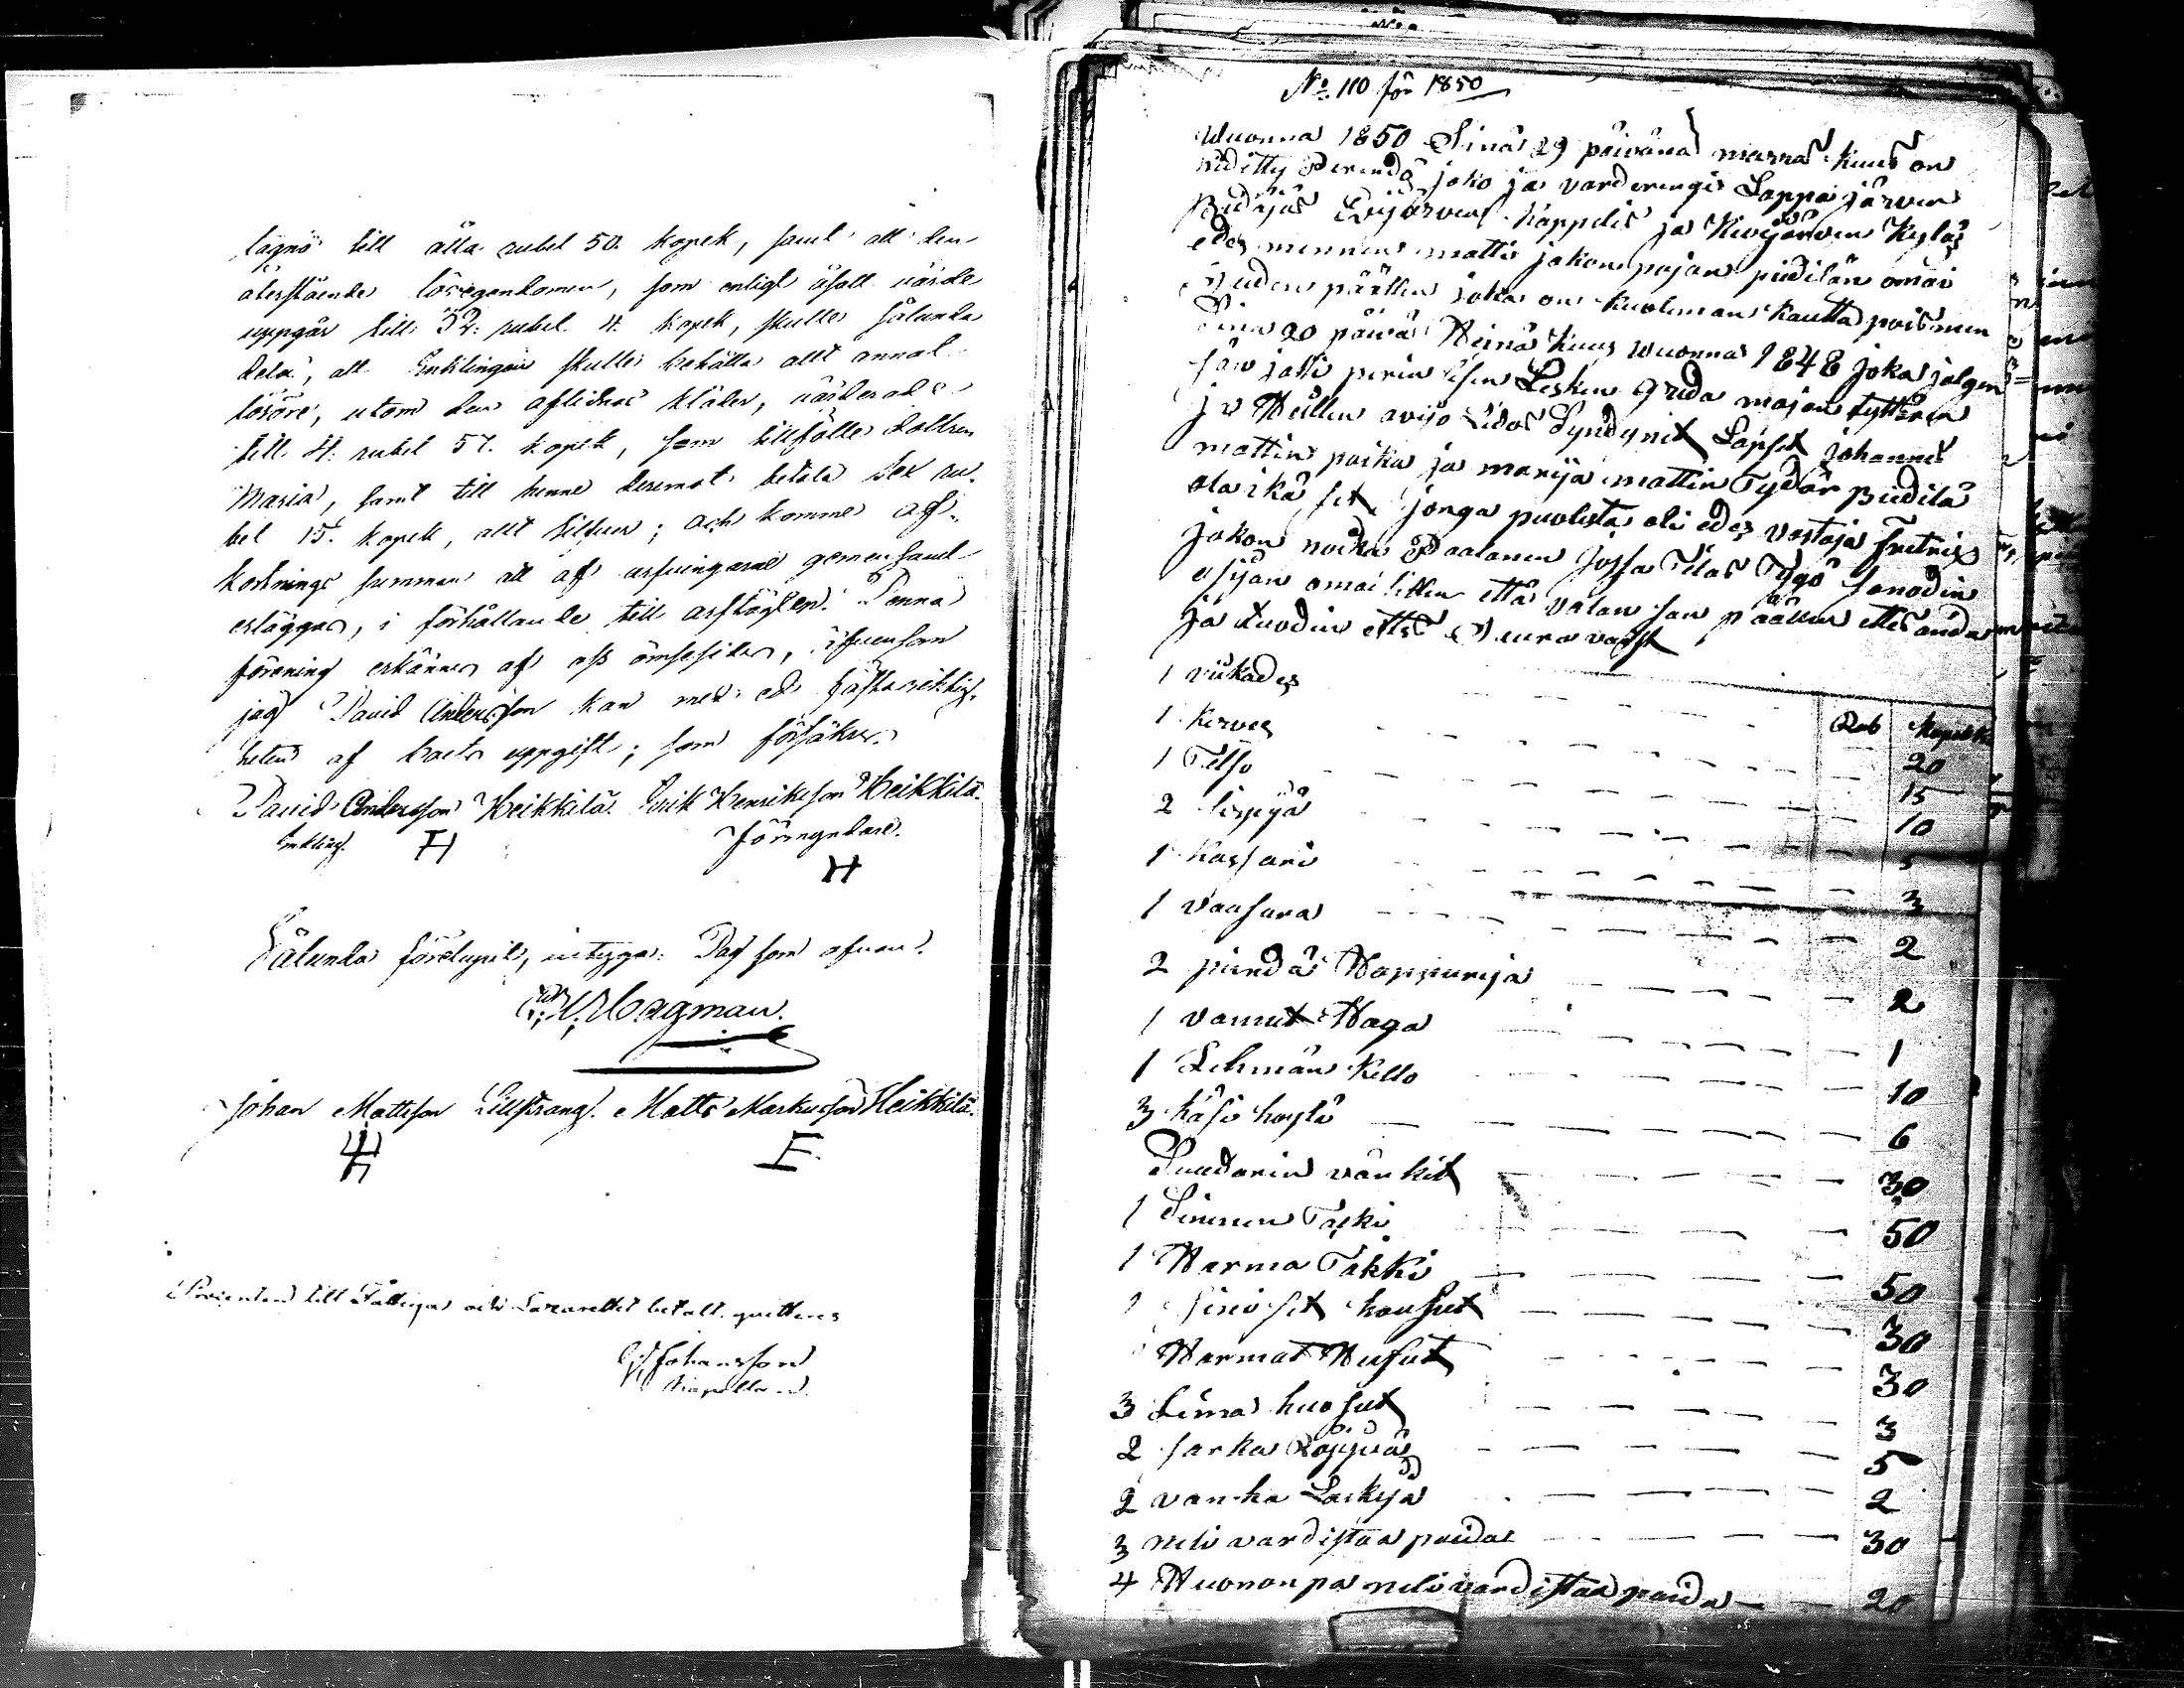 tagne till åtta rubel 50. kopek, samt att den
återstående lösegendomen, som enligt åsatt värde
uppgår till 32. rubel 4. kopek, skulle sålunda
dela, att Enklingen skulle behålla allt annat
lösöre, utom den aflidnes kläder, värderade
till 4. rubel 57. kopek, som tillfölle dottren
Maria, samt till henne deremot betala sex ru-
bel 15. kopek, allt silfver; och komme af-
kortnings summan att af arfvingarne gemensamt
erläggas, i förhållande till arfslotten. Denna
förening erkännes af oss ömsesides, äfvensom
jag David Andersson kan med ed fästa riktig-
heten af boets uppgift; som försäkras.
David Andersson Heikkilä. Erik Henriksson Heikkilä.
Enkling. Förmyndare.
Sålunda förelupit, intyga: Dag som ofvan.
Hagman.
Johan Mattson Lillstrang. Matts Markusson Heikkilä.
Procenten till Fattiga och Lazarettet betalt. quitteras
Johansson
Kapellan
No 110 för 1850
Wuonna 1850 Sinä 29 päivänä marras kuus on
pidetty Perindö joko ja varderingi Lappajärven
Pidäjäs Evijärven Kappelis ja Kivijärven Kyläs
edes mennen matti jakon pojan pudilän omai
suuden päällen joka on kuoleman kautta pois men
Sinä 20 päivä Heinä kuus wuonna 1848 joka jälgen=
sän jätti perin lisen Lesken Greda majan tyttären
ja Heillen avijo Lidos Syndynet Lapset johannes
mattin poika ja marija mattin Tydär Pudilä
ala ikäset jonga puolesta oli edes vastaja
jakon poika Paalanen jossa Tilas Tygö sanodin
osijan omai sillen että valan san päällen että anda
ja tuodin että seuravast
Rub Kopekka
1 viikades 20
1 kirves 15
1 Telso 10
2 5
1 Kassari 3
1 Vausara 2
2 pindä Happureja 2
1 vannet Haga 1
1 Lehmän kello 10
3 käsi höylä 6
Suudarin värkit 30
1 Sininen Takki 50
1 Harma Takki 50
1 siniset housut 30
Harmat Housut 30
3 Lima huosut 3
2 sarka Röijyäs 5
2 vanha Lackija 2
3 neli vardistaa paidas 30
4 Huonon pa neli vardistaa paida 20